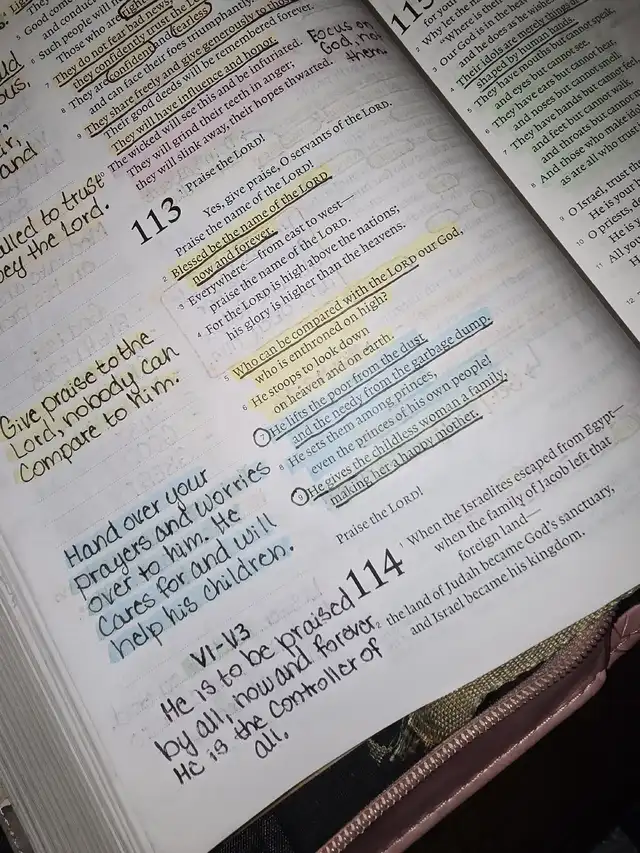 Such people will
Those who are
fearless
They do not fear bad news;
they confidently trust the L
They are confident and
and can face their foes triumphantly.
They share freely and give generously to th
Their good deeds will be remembered forever.
They will have influence and honor.
The wicked will see this and be infuriated.
They will grind their teeth in anger;
they will slink away, their hopes thwarted.
Focus on
God, not
them.
alled to trust
bey the Lord.
113
1 Praise the LORD!
Yes, give praise, O servants of the LORD.
Praise the name of the LORD!
2 Blessed be the name of the LORD
now and forever.
3 Everywhere—from east to west—
praise the name of the LORD.
4 For the LORD is high above the nations;
his glory is higher than the heavens.
5 Who can be compared with the LORD our God,
who is enthroned on high?
6 He stoops to look down
on heaven and on earth.
7 He lifts the poor from the dust
and the needy from the garbage dump.
8 He sets them among princes,
even the princes of his own people!
9 He gives the childless woman a family,
making her a happy mother.
Praise the LORD!
Give praise to the
Lord, nobody can
compare to him.
Hand over your
prayers and worries
over to him. He
cares for and will
help his children.
V1-V3
He is to be praised
by all, now and forever
He is the controller of
all.
114
1 When the Israelites escaped from Egypt—
when the family of Jacob left that
foreign land—
2 the land of Judah became God's sanctuary,
and Israel became his kingdom.
115
Why let the n
"Where is their
3 Our God is in the hea
and he does as he wishe
4 Their idols are merely things
shaped by human hands.
5 They have mouths but cannot speak,
and eyes but cannot see.
6 They have ears but cannot hear,
and noses but cannot smell.
7 They have hands but cannot fe
and feet but cannot walk,
and throats but cannot
8 And those who make id
as are all who tru
9 O Israel, trust the
He is your
10 O priests, de
He is y
11 All yo
H